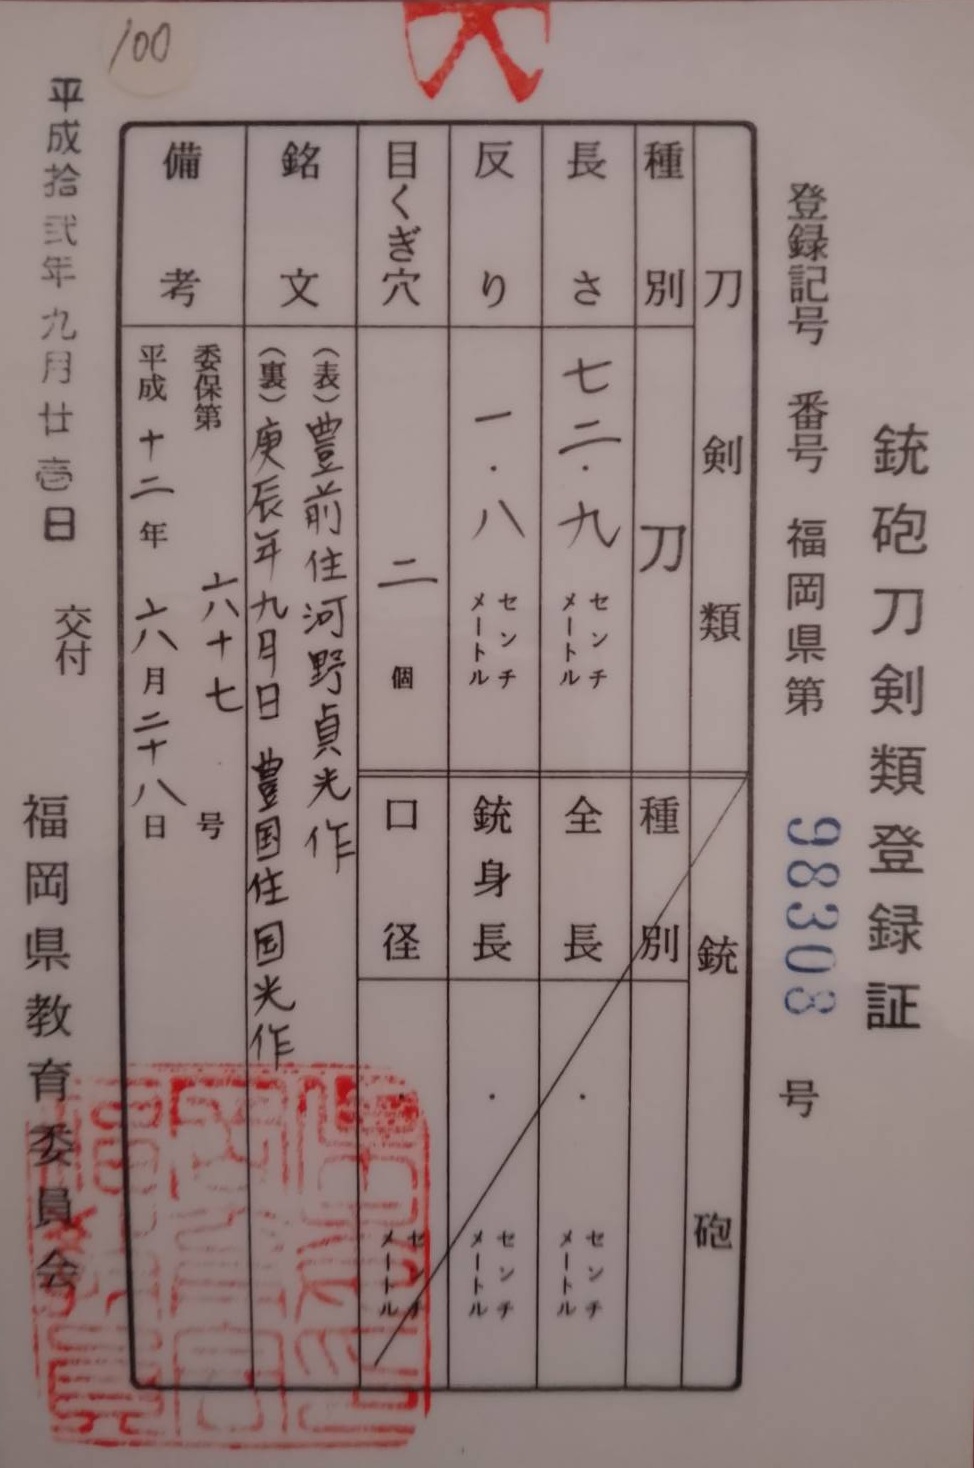 銃砲刀剣類登録証
登録記号 番号 福岡県第 98308 号
刀剣類
種別 刀
長さ 七二.九 センチメートル
反り 一.八 センチメートル
目くぎ穴 二 個
銘文 (表)豊前住河野貞光作
(裏)庚辰年九月日 豊国住国光作
備考 委保第 六十七 号
平成 十二 年 六 月 二十八 日
銃砲
種別
全長 . センチメートル
銃身長 . センチメートル
口径 . センチメートル
平成拾弐年九月廿壱日 交付
福岡県教育委員会
100